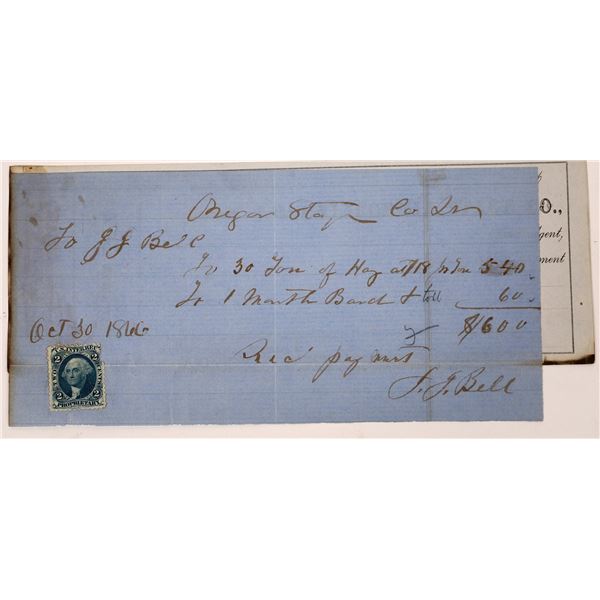 Oregon Stage Co Dr
To J J Bell
To 30 Ton of Hay at $18 pr Ton 540.
To 1 Month Board & toll 60.
$600
Oct 30 1866
Rec'd payment
J. J. Bell
U.S. INTER. REV.
2 2
TWO CENTS
2 2
PROPRIETARY
O.,
Agent,